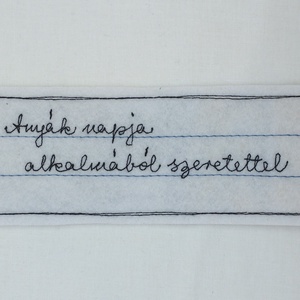 Anyák napja
alkalmából szeretettel